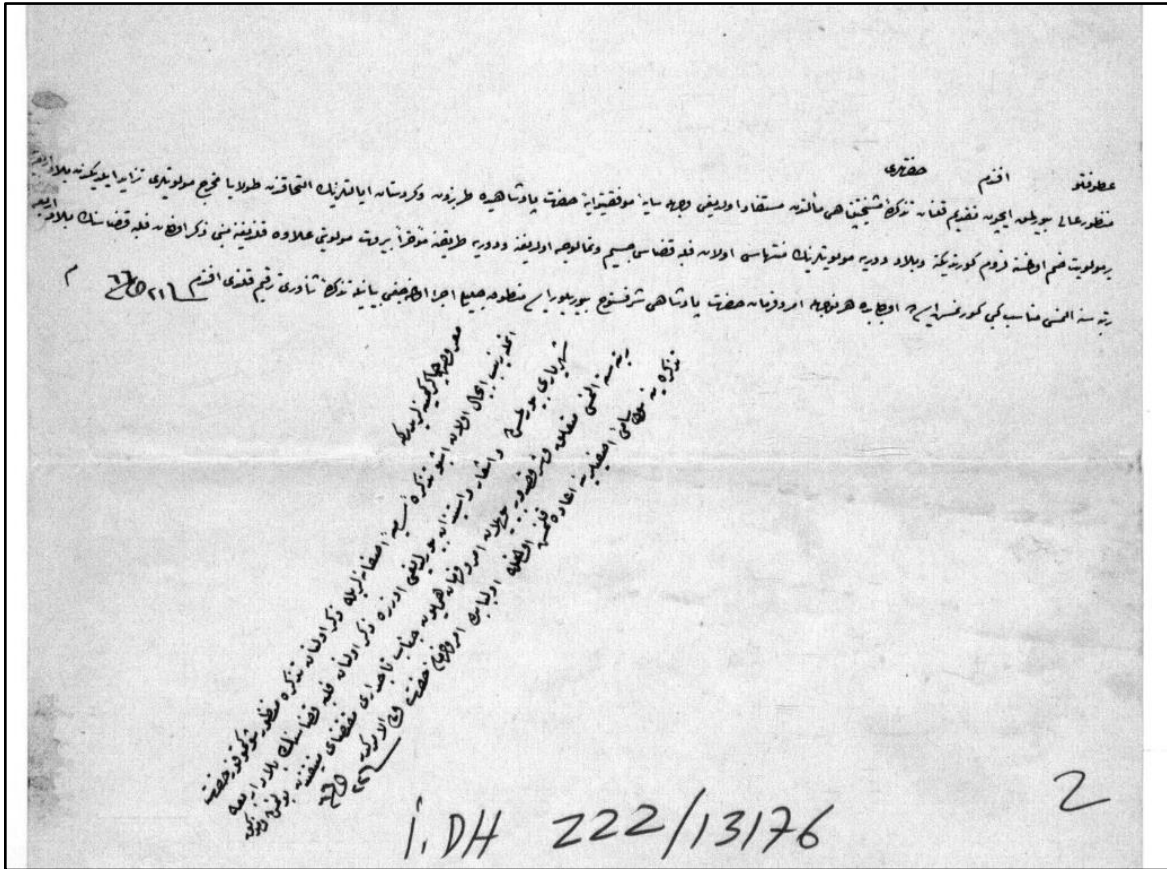 عطوفتلو افندم حضرتلری
منظور عالی بیورلمق ایچون تقدیم قلنان تذکرۀ مشیختپناهی مآلندن مستفاد اولدیغی وجهله سایۀ موفقیتوایۀ حضرت پادشاهیده طربزون وکردستان ایالتلرینك التحاقندن طولایی مخرج مولویتلری تزاید ایلدیکندن بلاد اربعه
بر مولویت ضم اولنمسنه لزوم کورندیکنه وبلاد دوریه مولویتلرینك منتهاسی اولان فلبه قضاسی جسیم وبدوریه طریقنه مؤخراً بیروت مولویتی علاوه قلندیغنه مبنی ذکر اولنان فلبه قضاسنك بلاد اربعه
رتبه سنه الحاقی مناسب کبی کورنمش ایسه ده اولبابده هر نوجهله امر وفرمان حضرت پادشاهی شرفسنوح بیوریلور ایسه منطوق جلیلی اجرا اولنه جغی بیانیله تذکرۀ ثناوری ترقیم قلندی افندم
معروض چاکر کمینه لریدر که
انملۀ زیب اجلال اولان اشبو تذکرۀ سامیۀ آصفانه لریله ذکر اولنان تذکره منظور شوکتموفور حضرت
شهریاری بیورلمش واشعار واستیذان بیورلدیغی اوزره ذکر اولنان فلبه قضاسنك بلاد اربعه
رتبه سنه الحاقی متعلق وشرفصدور بیوریلان امر وفرمان همایون جناب تاجداری مقتضای منیفندن بولنمش وبذکر
تذکره ینه صوب سامئ آصفیلرینه اعاده قلنمش اولمغله اولبابده امر وفرمان حضرت ولی الامرکدر
İ.DH 222/13176
2